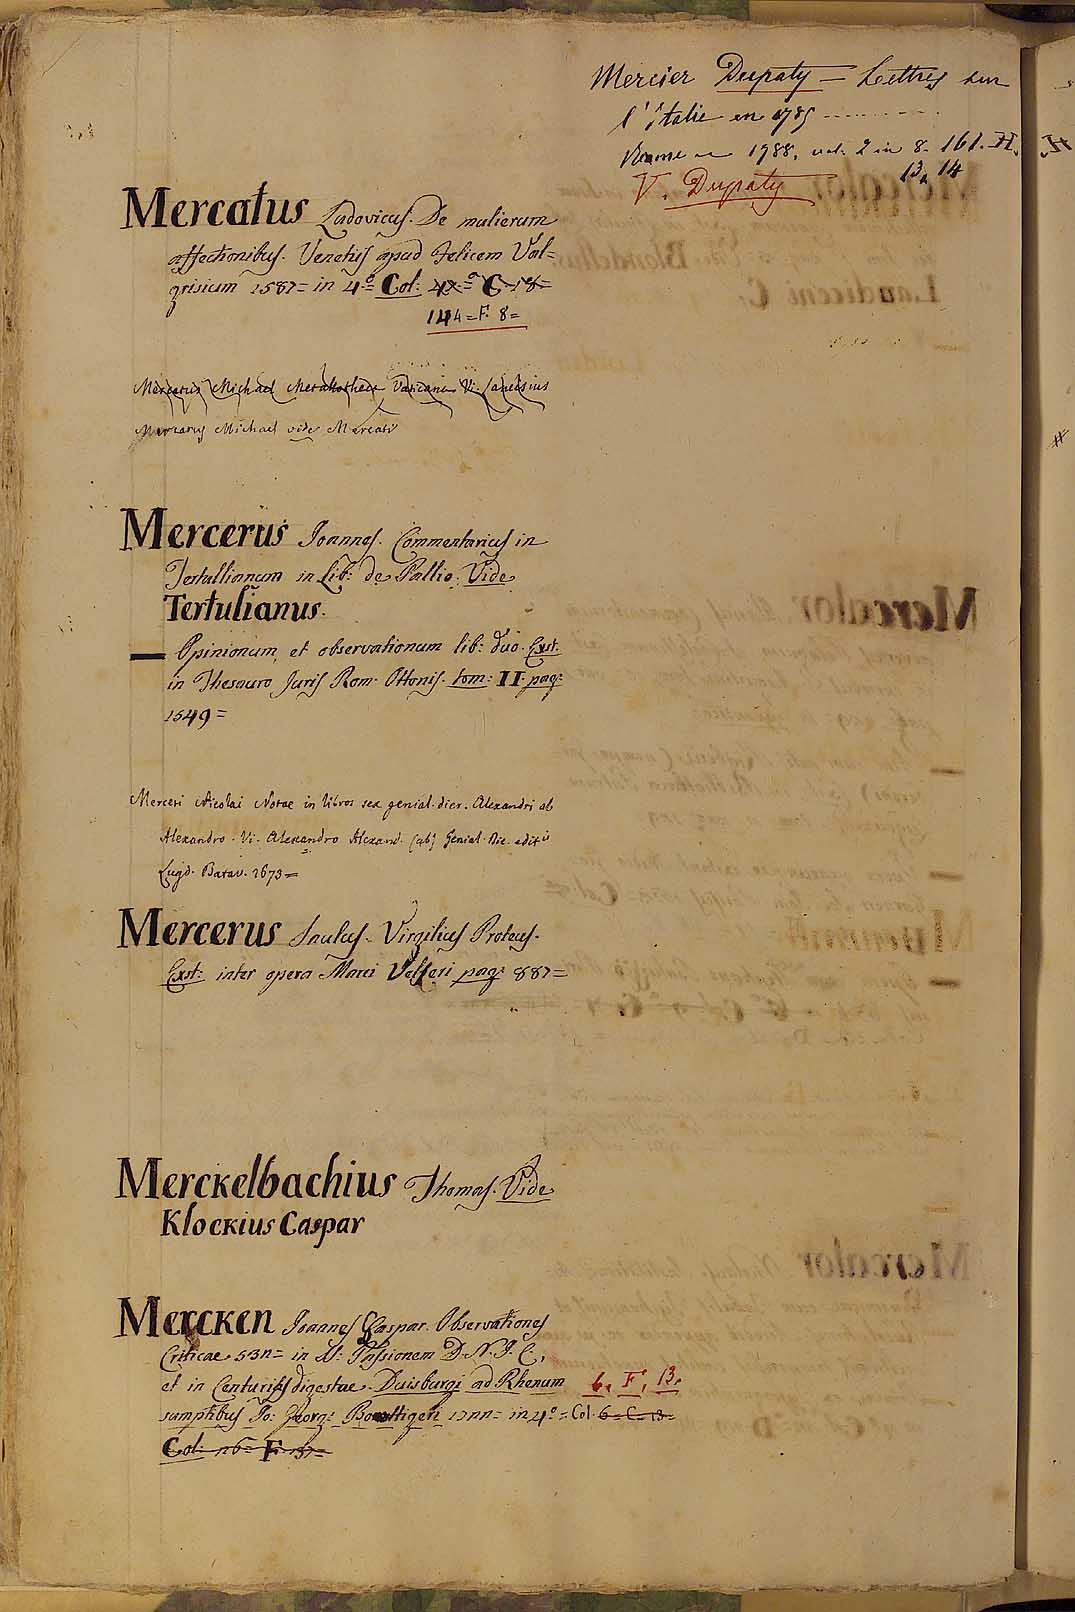 Mercier Dupaty = Lettres sur
l'Italie en 1785
Rome 1788. vol. 2 in 8. 161. H.
13, 14
V. Dupaty
Mercatus Ludovicus. De mulierum
affectionibus. Venetiis apud Felicem Val=
grisium 1587= in 4.º Col:
144=F. 8=
Mercatus Michael Metallotheca Vaticana Vi.
Mercatus Michael vide Mercati
Mercerus Joannes. Commentarius in
Tertullianum in Lib: de Pallio. Vide
Tertulianus.
— Opinionum, et observationum lib: duo. Exst:
in Thesauro Juris Rom. Ottonis. tom: II. pag:
1549=
Merceri Nicolai Notae in libros sex genial. dier. Alexandri ab
Alexandro. Vi. Alexandro Alexand. (ab) Genial. Die. editis
Lugd. Batav. 1673=
Mercerus Paulus. Virgilius Proteus.
Exst: inter opera Marci Velseri pag: 887=
Merckelbachius Thomas. Vide
Klockius Caspar
Mercken Joannes Caspar. Observationes
Criticae in Passionem D. N. J. C,
et in Centurias digestae. Duisburgi ad Rhenum 6, F, 13.
sumptibus Jo: Georg: in 4º= Col: 6= C= 13=
Col: F.